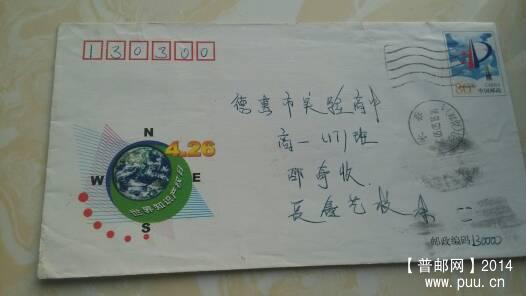 130300
80分
中国邮政
德惠市实验高中
高一(11)班
邵奇收
N
4.26
W
E
S
世界知识产权日
长春艺校
邮政编码130000
【普邮网】2014
www.puu.cn